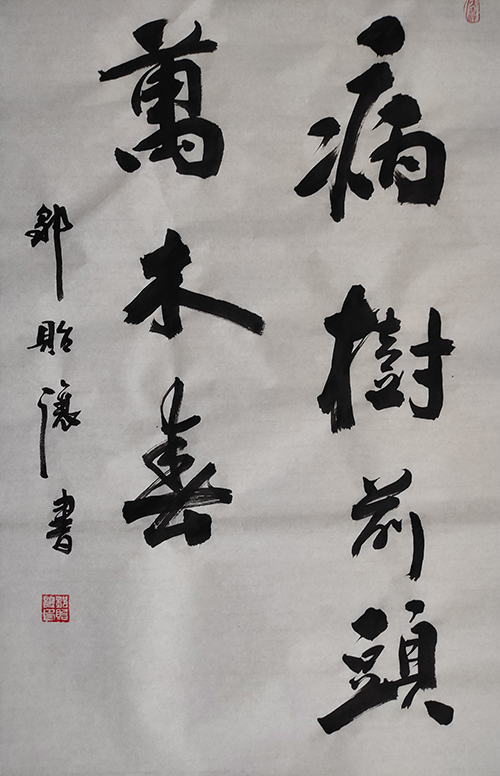 病樹前頭
萬木春
鄒貽讓書